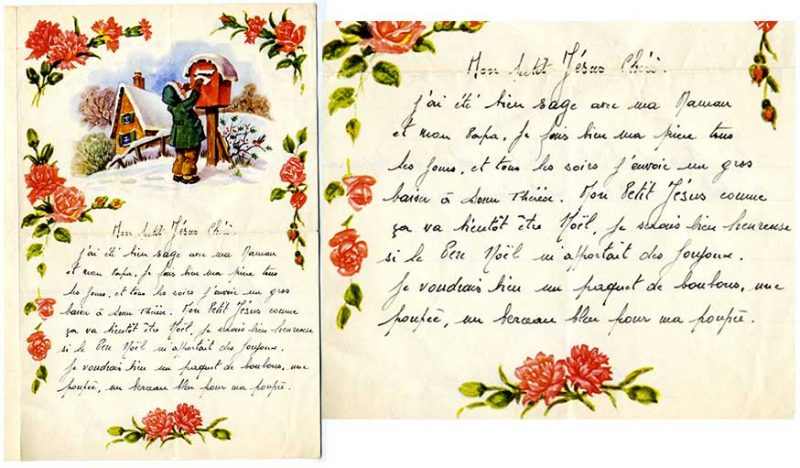 Mon petit Jésus Chéri.
J'ai été bien sage avec ma Maman
et mon Papa, Je fais bien ma prière tous
les jours, et tous les soirs j'envoie un gros
baiser à Soeur Thérèse. Mon Petit Jésus comme
ça va bientôt être Noël, je serais bien heureuse
si le Père Noël m'apportait des joujoux.
Je voudrais bien un paquet de bonbons, une
poupée, un berceau bleu pour ma poupée.
Mon petit Jésus Chéri.
J'ai été bien sage avec ma Maman
et mon Papa, Je fais bien ma prière tous
les jours, et tous les soirs j'envoie un gros
baiser à Soeur Thérèse. Mon Petit Jésus comme
ça va bientôt être Noël, je serais bien heureuse
si le Père Noël m'apportait des joujoux.
Je voudrais bien un paquet de bonbons, une
poupée, un berceau bleu pour ma poupée.